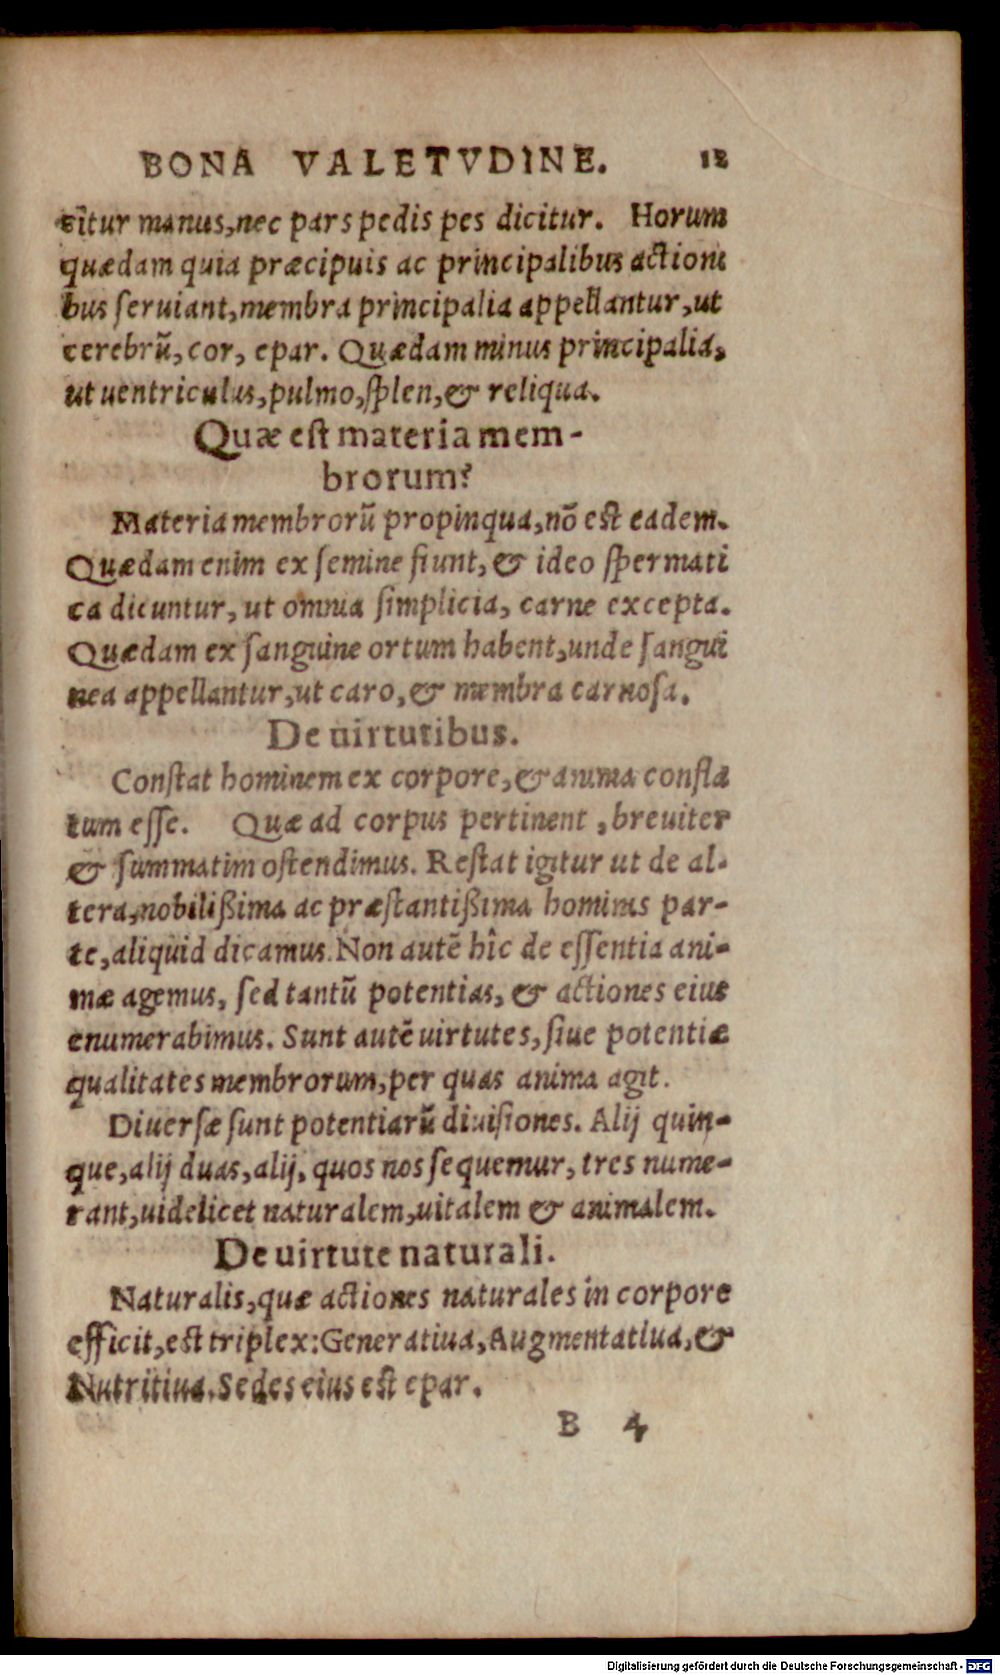 BONA VALETVDINE. 12
citur manus, nec pars pedis pes dicitur. Horum
quædam quia præcipuis ac principalibus actioni
bus seruiant, membra principalia appellantur, ut
cerebrũ, cor, epar. Quædam minus principalia,
ut uentriculus, pulmo, splen, & reliqua.
Quæ est materia mem-
brorum?
Materia membrorũ propinqua, nõ est eadem.
Quædam enim ex semine fiunt, & ideo spermati
ca dicuntur, ut omnia simplicia, carne excepta.
Quædam ex sanguine ortum habent, unde sangui
nea appellantur, ut caro, & membra carnosa.
De uirtutibus.
Constat hominem ex corpore, & anima confla
tum esse. Quæ ad corpus pertinent, breuiter
& summatim ostendimus. Restat igitur ut de al-
tera, nobilißima ac præstantißima hominis par-
te, aliquid dicamus. Non autẽ hîc de essentia ani-
mæ agemus, sed tantũ potentias, & actiones eius
enumerabimus. Sunt autẽ uirtutes, siue potentiæ
qualitates membrorum, per quas anima agit.
Diuersæ sunt potentiarũ diuisiones. Alij quin-
que, alij duas, alij, quos nos sequemur, tres nume-
rant, uidelicet naturalem, uitalem & animalem.
De uirtute naturali.
Naturalis, quæ actiones naturales in corpore
efficit, est triplex: Generatiua, Augmentatiua, &
Nutritiua. Sedes eius est epar.
B 4
Digitalisierung gefördert durch die Deutsche Forschungsgemeinschaft - DFG